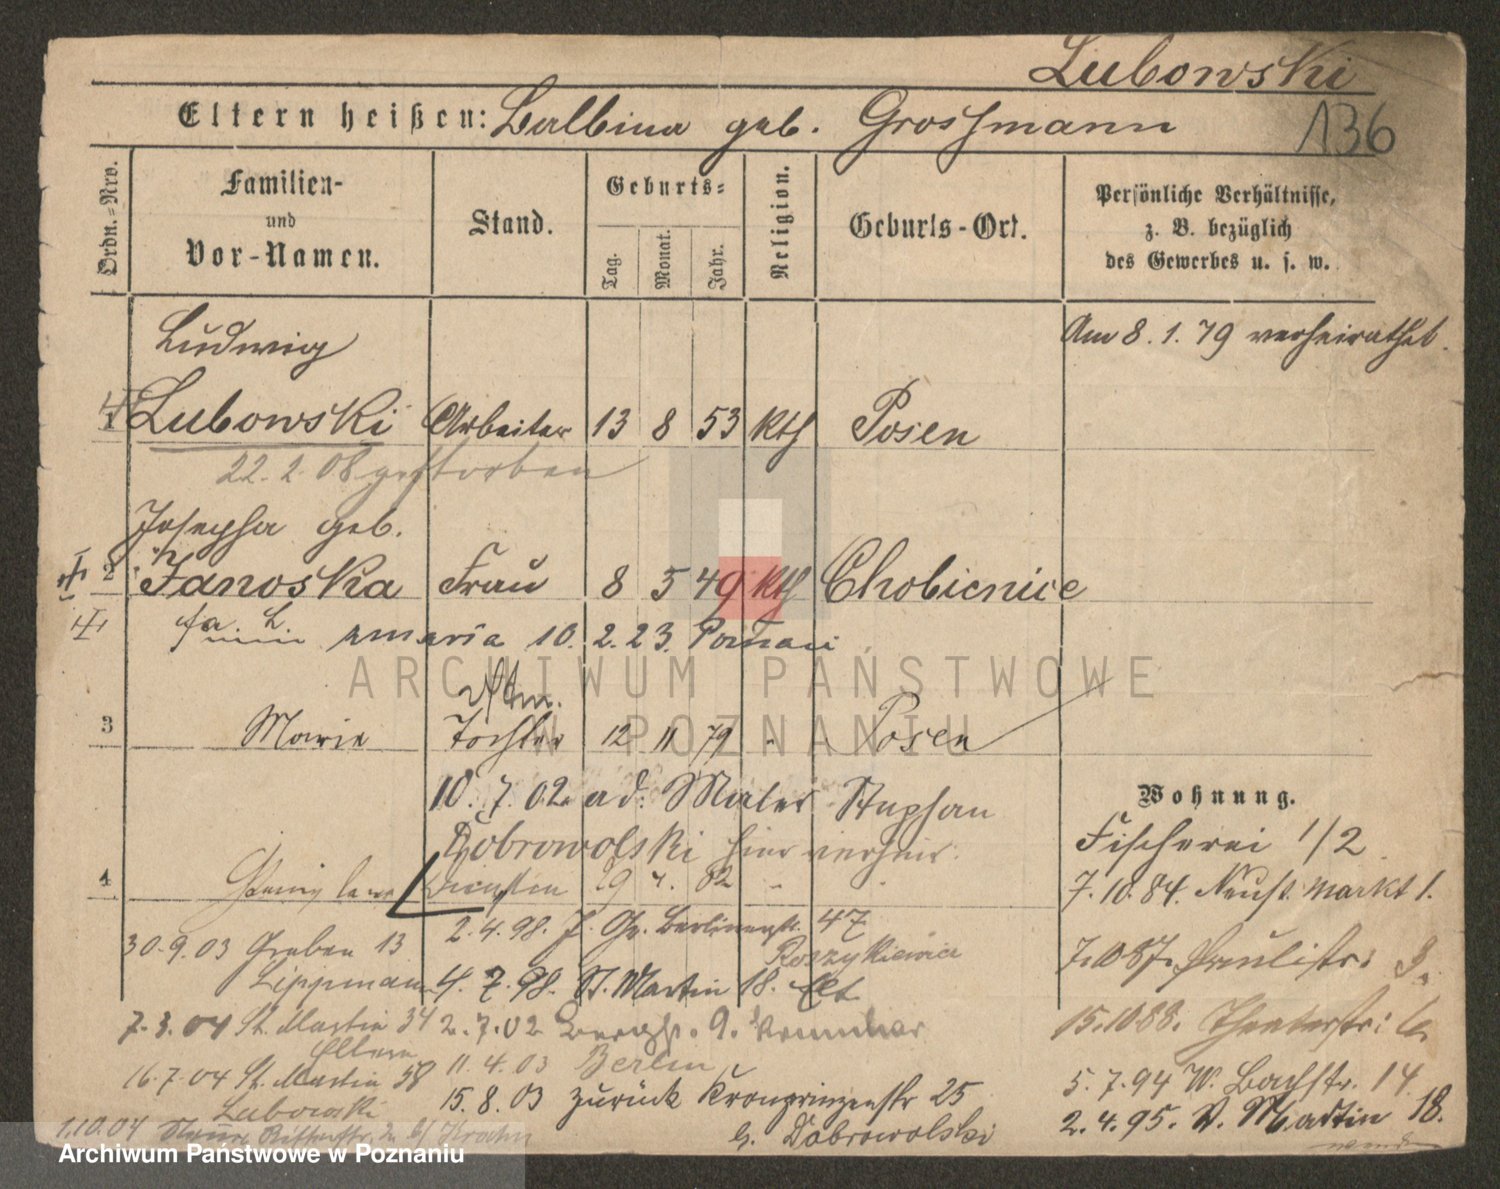 Lubowski
136
Eltern heißen: Balbina geb. Grossmann
Ordn.=Nro.
Familien-
und
Vor-Namen.
Stand.
Geburts=
Tag.
Monat.
Jahr.
Religion.
Geburts-Ort.
Persönliche Verhältnisse,
z. B. bezüglich
des Gewerbes u. s. w.
Am 8. 1. 79 verheirathet.
Ludwig
1 Lubowski Arbeiter 13 8 53 kth Posen
22. 2. 08 gestorben
Josepha geb.
2 Janoska Frau 8 5 49 kth Chobienice
Maria 10. 2. 23. Poznań
3 Marie Tochter 12 11 79 " Posen
10. 7. 02 ad. Maler Stephan
Dobrowolski hier verheir.
4
2. 4. 98. Gr. Berlinerstr. 47
Roszykiewicz
4. 7. 98. St. Martin 18.
2. 7. 02 Bergstr. 9.
11. 4. 03 Berlin
15. 8. 03 zurück Kronprinzenstr 25
b. Dobrowolski
30. 9. 03 Graben 13
Lippmann
7. 3. 04 St. Martin 34
Eltern
16. 7. 04 St. Martin 58
Lubowski
1.10.04 Ritterstr. 2 b/ Krahn
Wohnung.
Fischerei 1/2
7. 10. 84. Neust. Markt 1.
7. 10 87. Paulistr: 3.
15. 10 88. Theaterstr: 6.
5. 7. 94 W. Bachstr. 14.
2. 4. 95. St. Martin 18.
ARCHIWUM PAŃSTWOWE
W POZNANIU
Archiwum Państwowe w Poznaniu